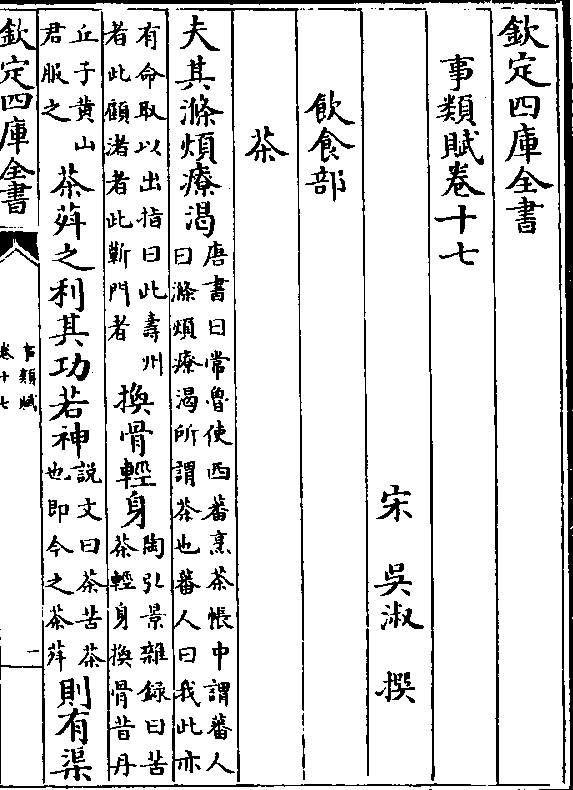 欽定四庫全書
事類賦卷十七
宋 吳淑 撰
飲食部
茶
夫其滌煩療渴唐書曰常魯使西蕃烹茶帳中謂蕃人曰滌煩療渴所謂茶也蕃人曰我此亦
有命取以出指曰此壽州者此顧渚者此蘄門者換骨輕身陶弘景雜録曰苦茶輕身換骨昔丹
丘子黄山君服之茶荈之利其功若神説文曰茶苦茶也即今之茶荈則有渠
欽定四庫全書
事類賦
卷十七
一